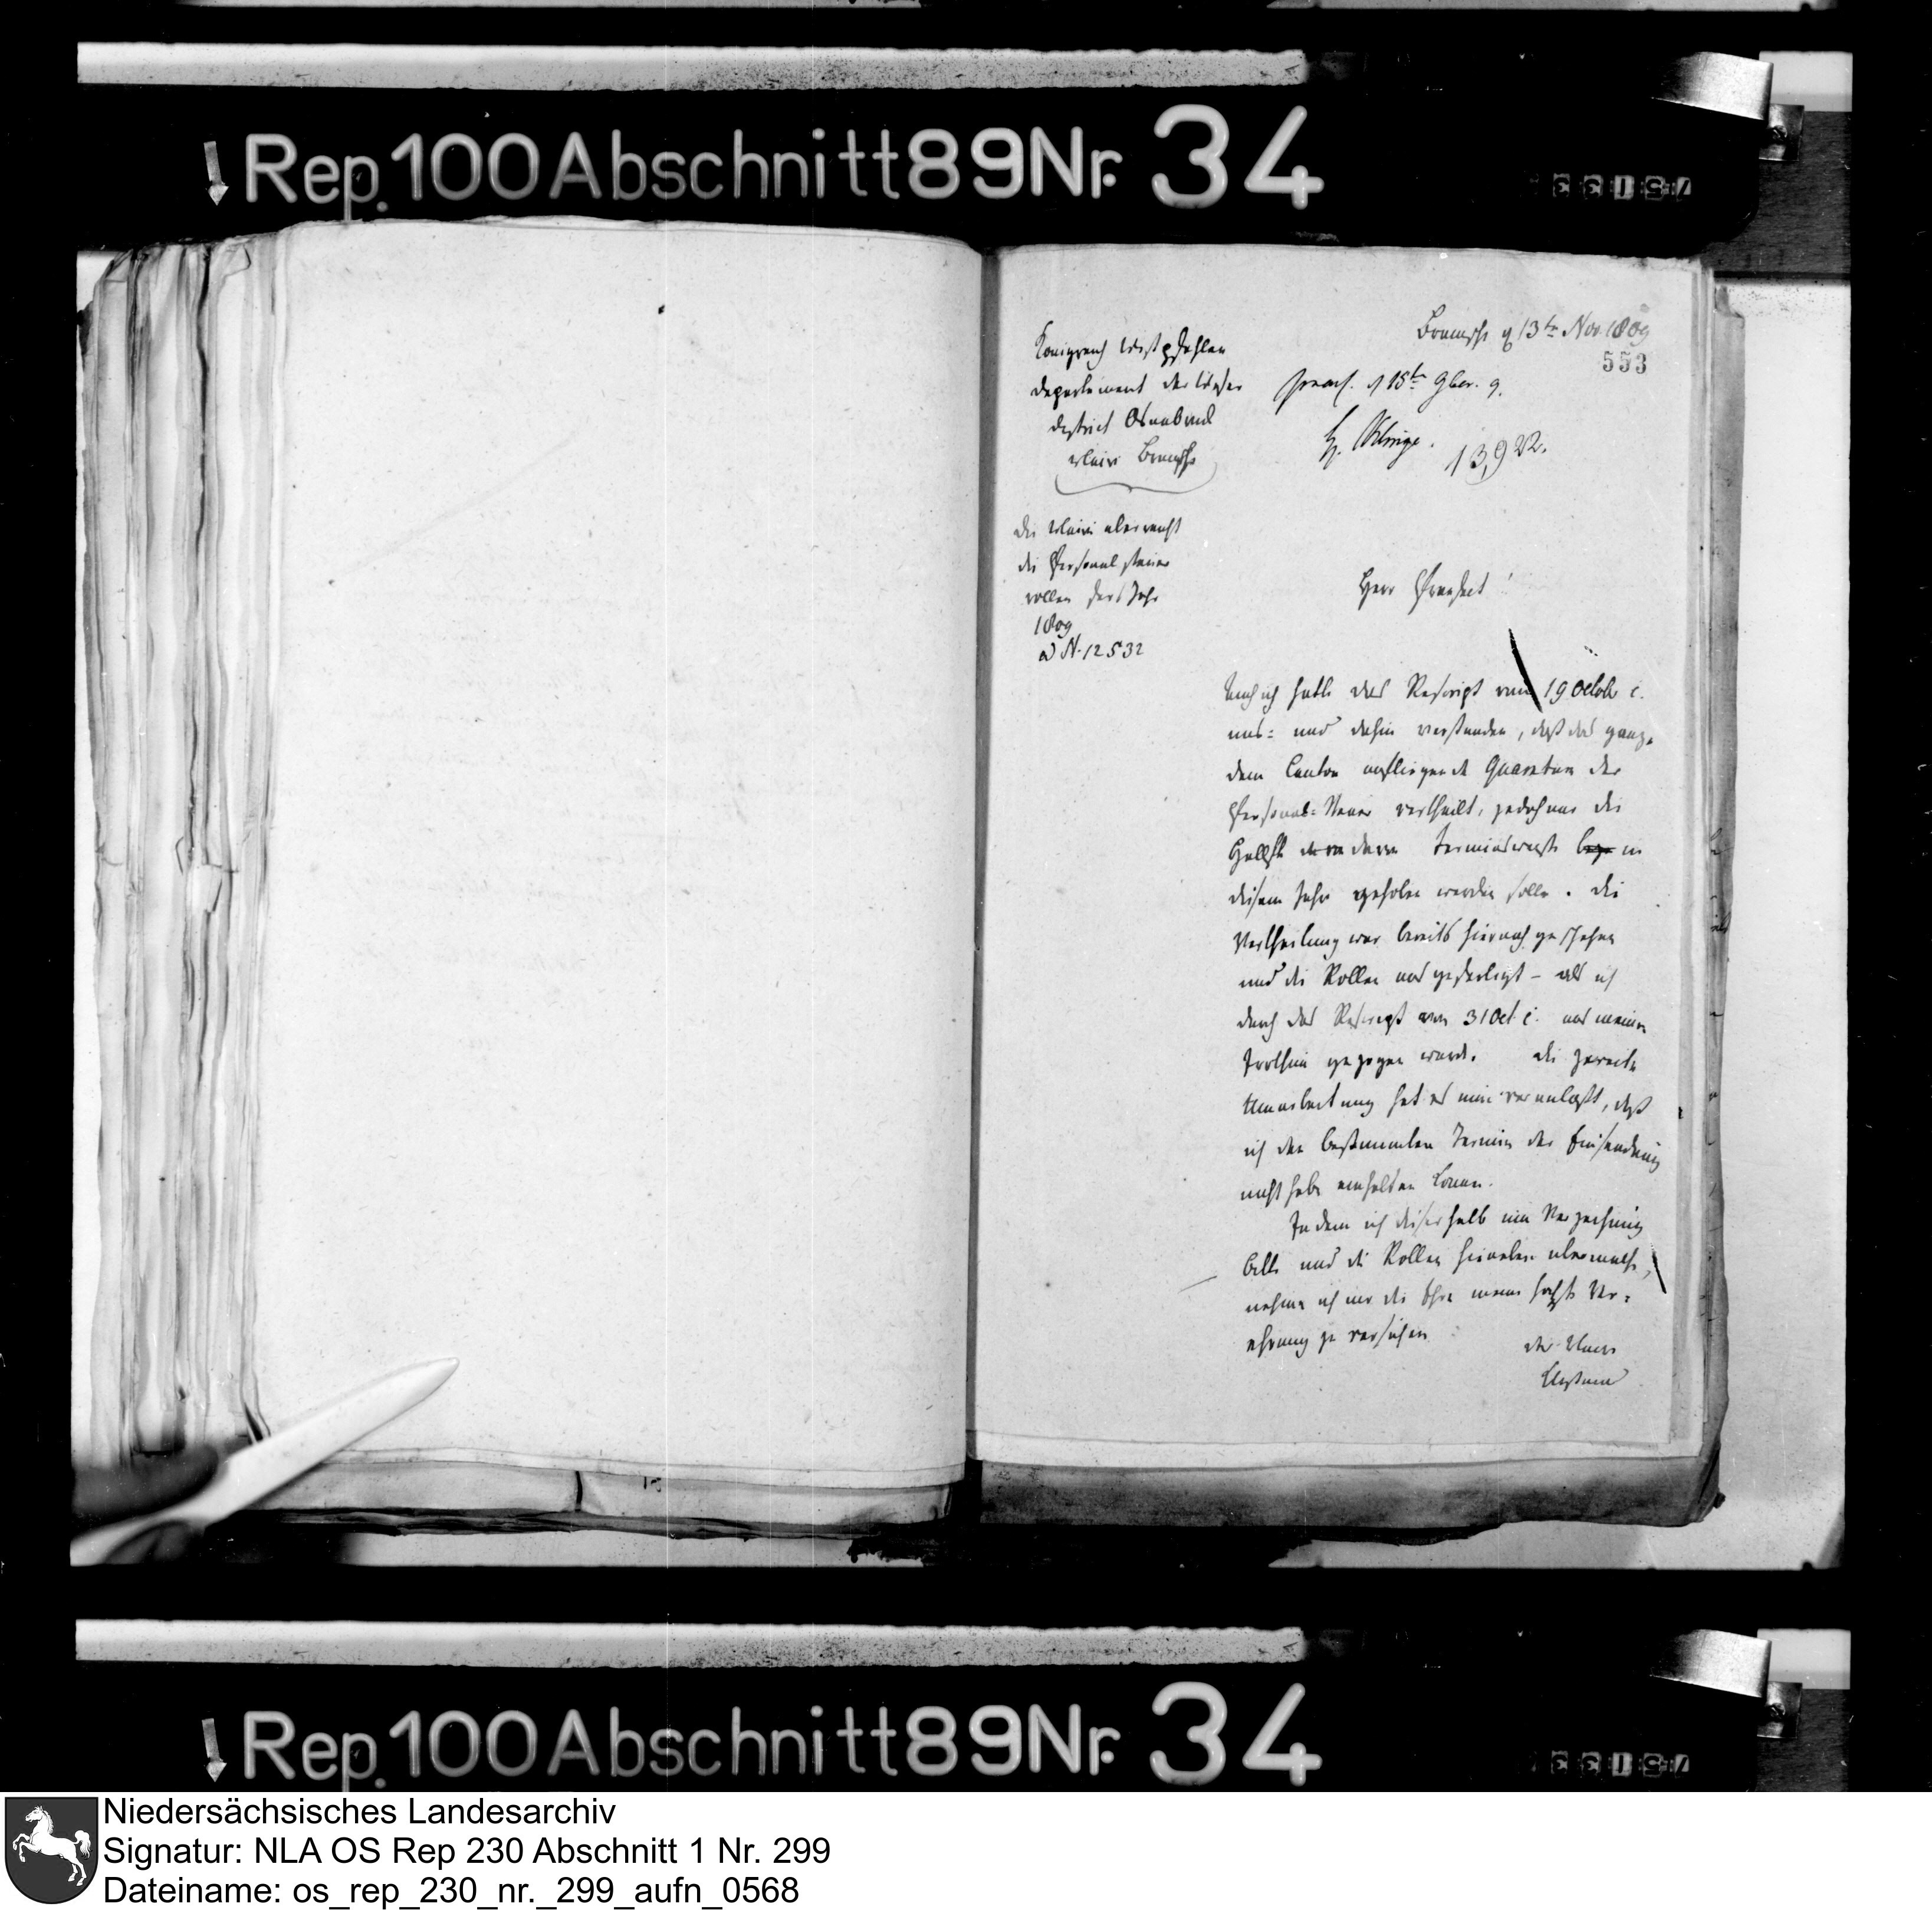 Rep. 100 Abschnitt 89 Nr. 34
75133
Bramsche d 13ten Nov. 1809
553
Königreich Westphalen
Departement der Weser
District Osnabrück
Mairie Bramsche
praes. d 15ten 9ber. 9.
H. Klinge.
13,922.
Der Maire überreicht
die Personalsteuer
rollen des Jahr
1809
ad N. 12532
Herr Praefect!
hatte das Rescript vom 19 Octobr c.
und dahin verstanden, daß das ganze
dem Canton aufliegende Quantum der
Personal-Steuer vertheilt, jedoch nur die
Hälfte davon terminsweise in
diesem Jahr gehoben werden solle. Die
Vertheilung war bereits hiernach geschehen
und die Rollen ausgefertigt – als ich
durch das Rescript vom 31 Oct. c. aus meinem
Irrthum gezogen wurde. Die zweite
Umarbeitung hat es nun veranlaßt, daß
ich den bestimmten Termin der Einsendung
nicht habe einhalten können.
Indem ich dieserhalb um Verzeihung
bitte und die Rollen hierneben überreiche,
nehme ich mir die Ehre meine höchste Ver=
ehrung zu versichern
Der Maire
Rep. 100 Abschnitt 89 Nr. 34
75133
Niedersächsisches Landesarchiv
Signatur: NLA OS Rep 230 Abschnitt 1 Nr. 299
Dateiname: os_rep_230_nr._299_aufn_0568